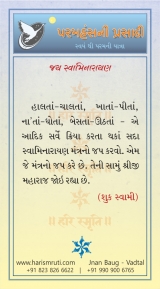 પરમહંસની પ્રસાદી
સ્વયં થી પરમની યાત્રા
જય સ્વામિનારાયણ
હાલતાં-ચાલતાં, ખાતાં-પીતાં,
ના'તાં-ધોતાં, બેસતાં-ઊઠતાં - એ
આદિક સર્વે ક્રિયા કરતા થકાં સદા
સ્વામિનારાયણ મંત્રનો જપ કરવો. એમ
જે મંત્રનો જપ કરે છે. તેની સામું શ્રીજી
મહારાજ જોઇ રહ્યા છે.
(શુક સ્વામી)
॥ हरि स्मृति ॥
www.harismruti.com Jnan Baug - Vadtal
+91 823 826 6622 | +91 990 900 6765